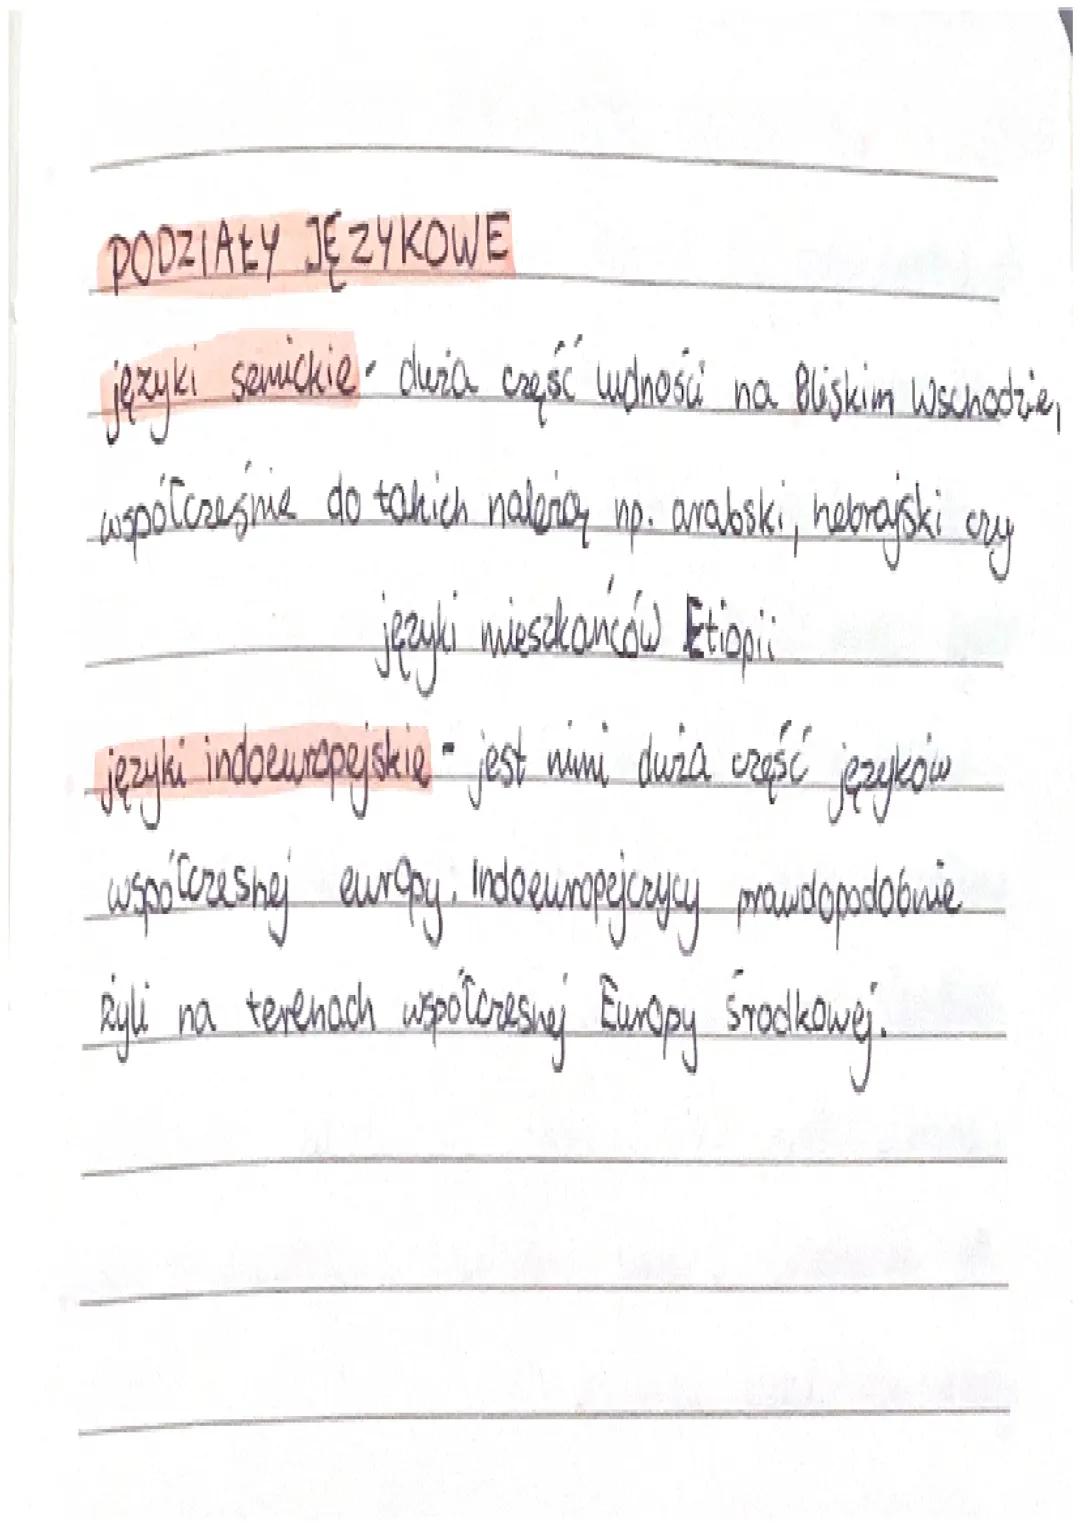 PODZIAŁY JĘZYKOWE
języki semickie - duża część ludności na Bliskim Wschodzie,
współcześnie do takich należą np. arabski, hebrajski czy
języki mieszkańców Etiopii
języki indoeuropejskie - jest nimi duża część języków
współczesnej europy. Indoeuropejczycy prawdopodobnie
żyli na terenach współczesnej Europy Środkowej.